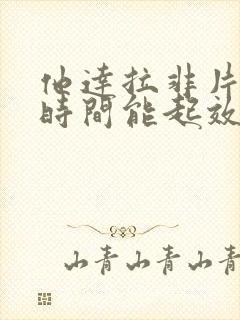 他達拉非片
時間能起效
山青山青山青